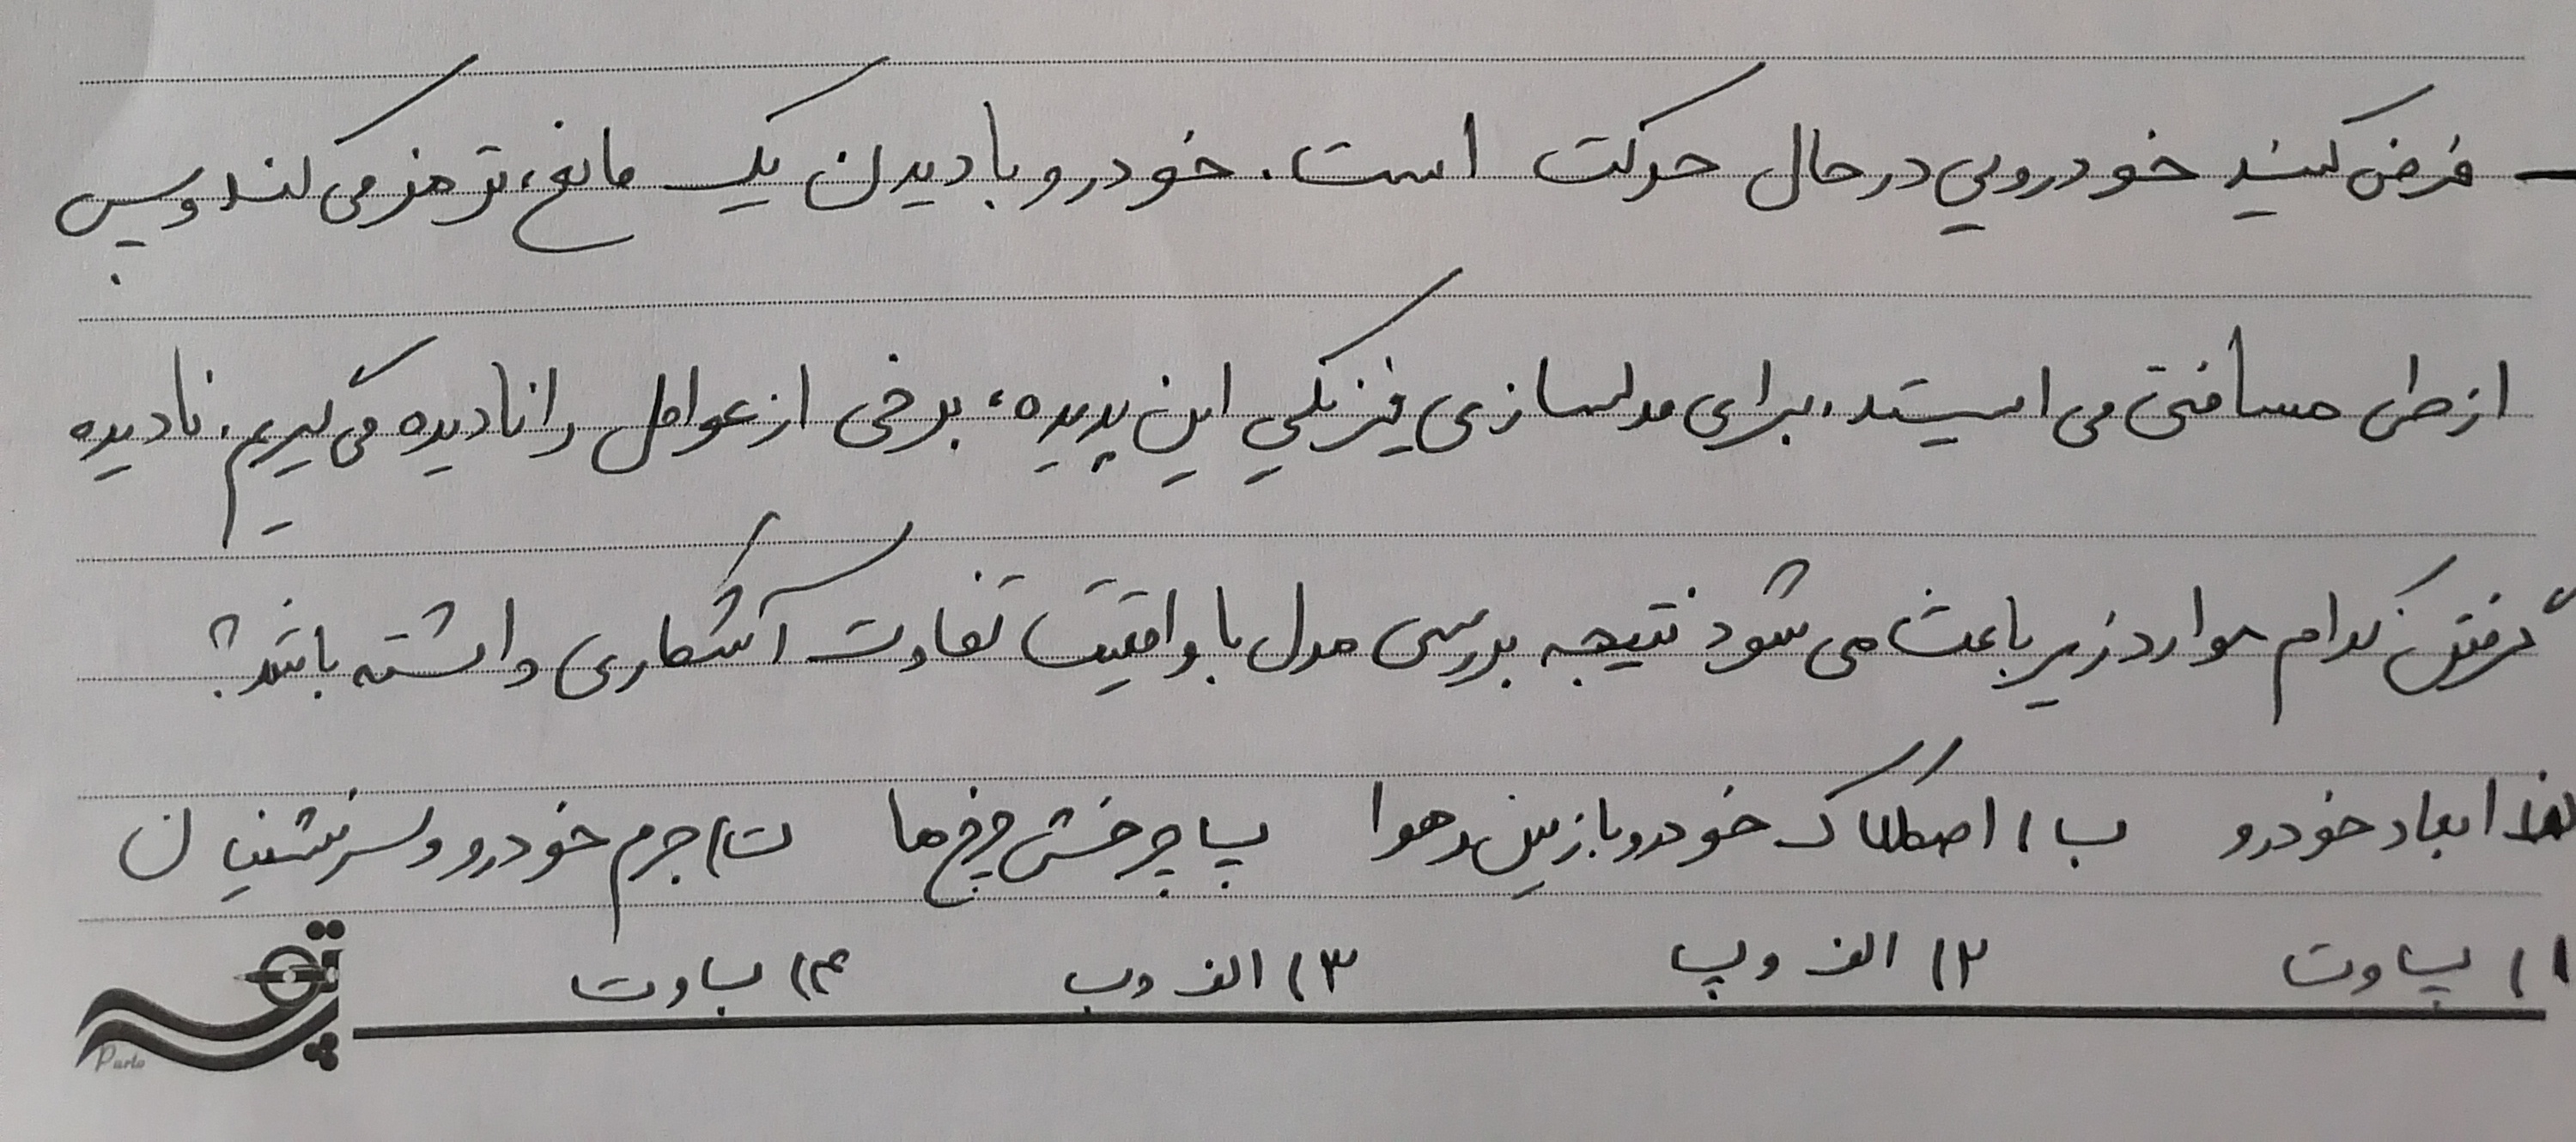 - فرض کنید خودرویی در حال حرکت است. خودرو با دیدن یک مانع، ترمز می کند و پس
از طی مسافتی می ایستد. برای مدلسازی فیزیکی این پدیده، برخی از عوامل را نادیده می گیریم. نادیده
گرفتن کدام موارد زیر باعث می شود نتیجه بررسی مدل با واقعیت تفاوت آشکاری داشته باشد؟
الف) ابعاد خودرو ب) اصطکاک خودرو با زمین و هوا پ) چرخش چرخ ها ت) جرم خودرو و سرنشینان
۱) پ و ت ۲) الف و پ ۳) الف و ب ۴) ب و ت
Parto